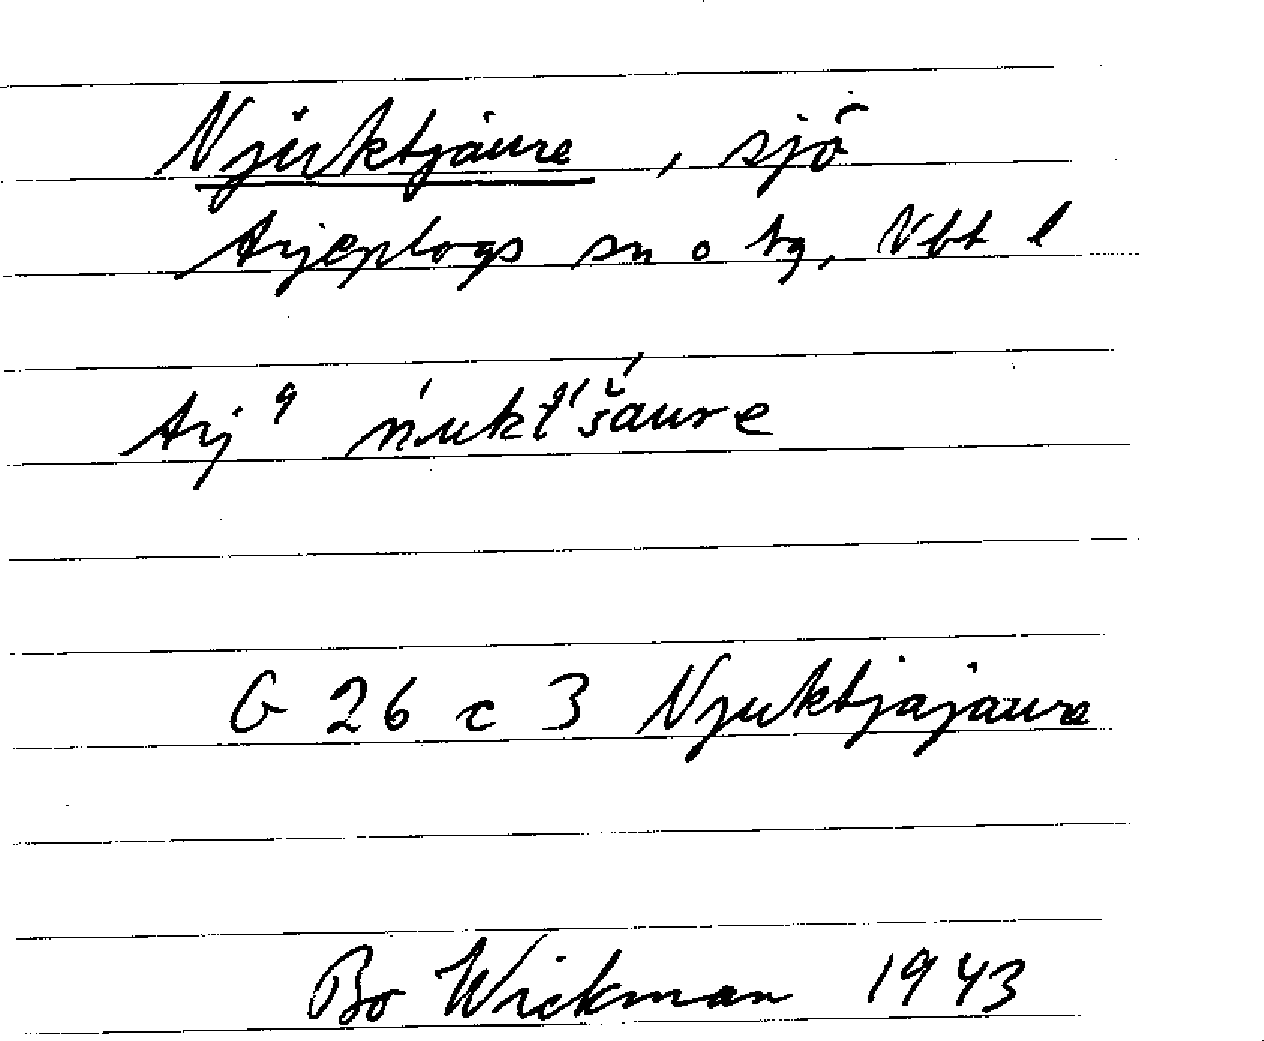 Njuktjaure, sjö
Arjeplogs sn o tg, Vbt l
Arj 9 ńukt́'šaure
G 26 c 3 Njuktjajaure
Bo Wickman 1943